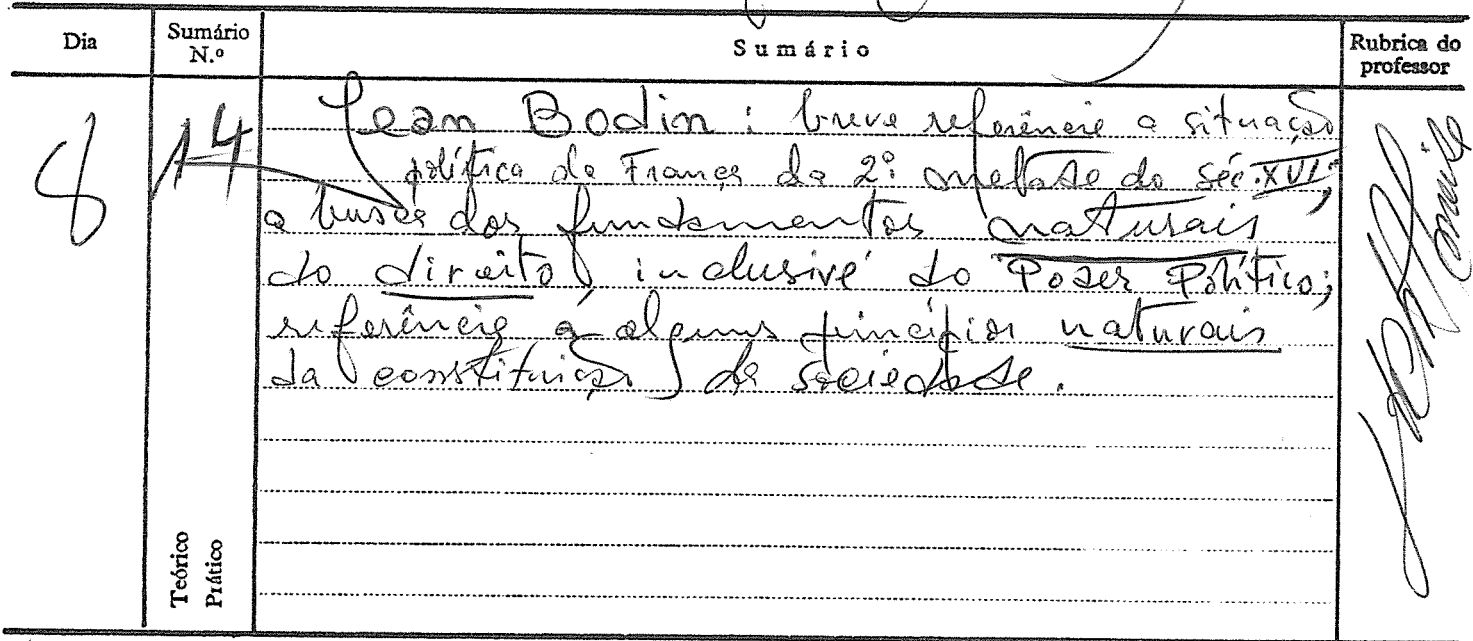 Dia
Sumário N.º
Sumário
Rubrica do professor
8
14
Jean Bodin : breve referência a situação
política da França da 2ª metade do séc. XVI;
a busca dos fundamentos naturais
do direito, inclusivé do Poder Político;
referência a alguns princípios naturais
da constituição da sociedade.
Teórico
Prático